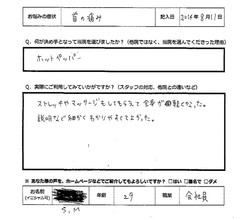 お悩みの症状 首の痛み 記入日 2016年8月17日
Q. 何が決め手となって当院を選びましたか？（他院ではなく、当院を選んでくださった理由）
ホットペッパー
Q. 実際にご利用してみていかがですか？（スタッフの対応、他院との違いなど）
ストレッチやマッサージもしてもらえて全身が軽くなった。
説明など細かくわかりやすくてよかった。
※ あなた様の声を、ホームページなどでご紹介してもよろしいですか？ □はい □匿名で □ダメ
お名前 年齢 29 職業 会社員
(イニシャル可) S.M